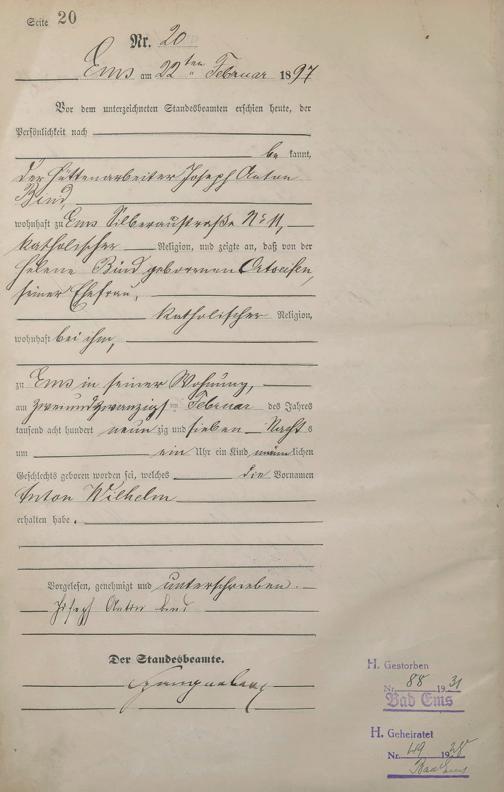 Seite 20
Nr. 20
Ems am 22ten Februar 1897
Vor dem unterzeichneten Standesbeamten erschien heute, der
Persönlichkeit nach
be kannt,
der Hüttenarbeiter Joseph Anton
Bind,
wohnhaft zu Ems Silberaustraße No 11,
katholischer Religion, und zeigte an, daß von der
Helene Bind geborenen
seiner Ehefrau,
katholischer Religion,
wohnhaft bei ihm,
zu Ems in seiner Wohnung,
am zweiundzwanzigsten Februar des Jahres
tausend acht hundert neunzig und sieben Nachts
um ein Uhr ein Kind männlichen
Geschlechts geboren worden sei, welches die Vornamen
Anton Wilhelm
erhalten habe.
Vorgelesen, genehmigt und unterschrieben.
Joseph Anton
Der Standesbeamte.
H. Gestorben
Nr. 88 1931
Bad Ems
H. Geheiratet
Nr. 49 19
Bad Ems